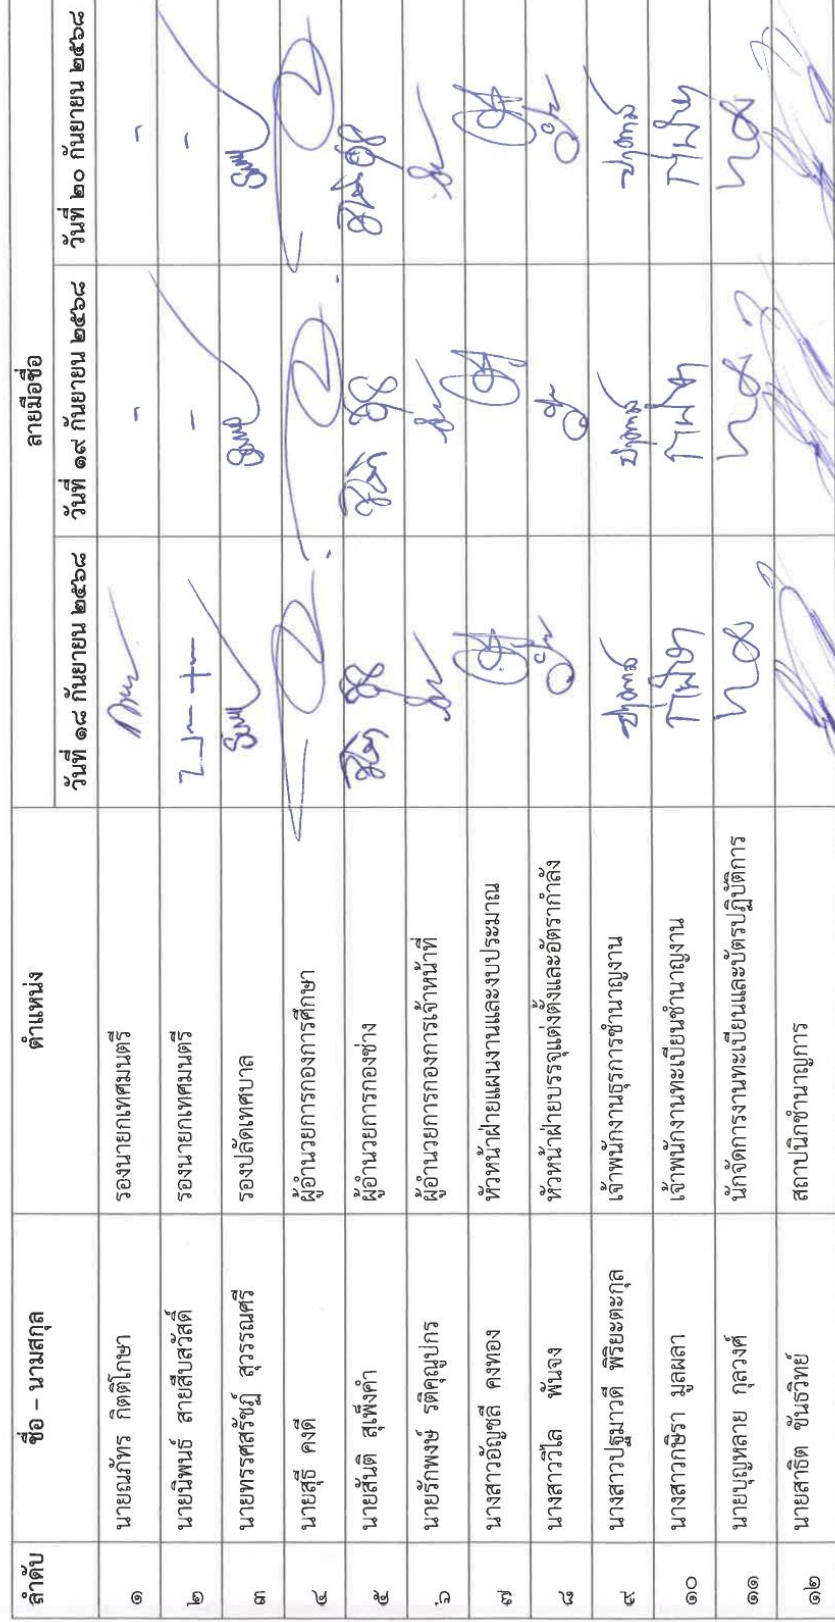 ลำดับ ชื่อ – นามสกุล ตำแหน่ง ลายมือชื่อ
วันที่ ๑๘ กันยายน ๒๕๖๘ วันที่ ๑๙ กันยายน ๒๕๖๘ วันที่ ๒๐ กันยายน ๒๕๖๘
๑ นายณภัทร กิตติโกษา รองนายกเทศมนตรี - -
๒ นายนิพนธ์ สายสืบสวัสดิ์ รองนายกเทศมนตรี - -
๓ นายทรรศสรัชฎ์ สุวรรณศรี รองปลัดเทศบาล
๔ นายสุธี คงดี ผู้อำนวยการกองการศึกษา
๕ นายสันติ สุเพ็งคำ ผู้อำนวยการกองช่าง
๖ นายรักพงษ์ รติคุณูปกร ผู้อำนวยการกองการเจ้าหน้าที่
๗ นางสาวอัญชลี คงทอง หัวหน้าฝ่ายแผนงานและงบประมาณ
๘ นางสาววิไล พันจง หัวหน้าฝ่ายบรรจุแต่งตั้งและอัตรากำลัง
๙ นางสาวปฐมาวดี พิริยะตะกุล เจ้าพนักงานธุรการชำนาญงาน
๑๐ นางสาวกษิรา มูลผลา เจ้าพนักงานทะเบียนชำนาญงาน
๑๑ นายบุญหลาย กุลวงศ์ นักจัดการงานทะเบียนและบัตรปฏิบัติการ
๑๒ นายสาธิต ขันธวิทย์ สถาปนิกชำนาญการ